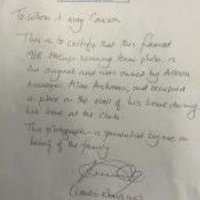 To whom it may concern
This is to certify that this framed
1968 winning team photo, is
an original and was owned by
Alan and occupied
a place on the wall of his home during
his time at the club.
This photograph is presented by me on
behalf of the family